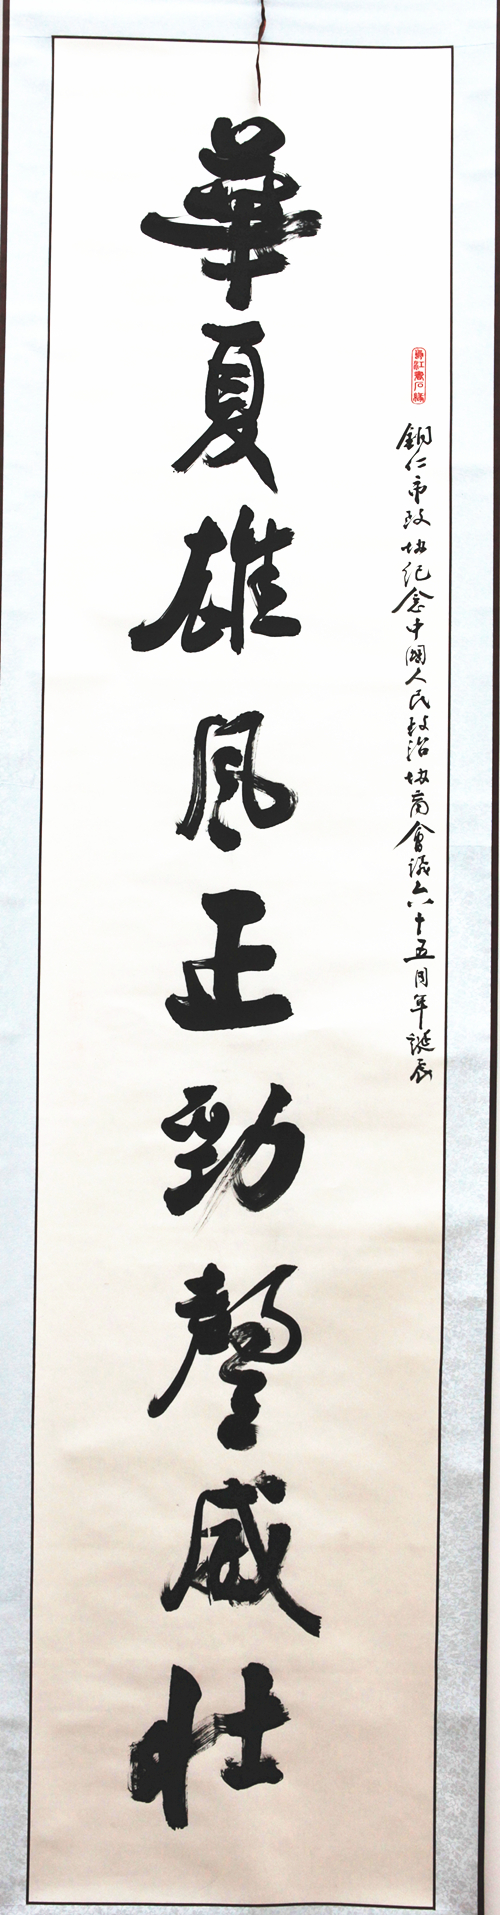 銅仁市政协纪念中國人民政治协商會議六十五周年誕辰
華夏雄風正勁聲威壯